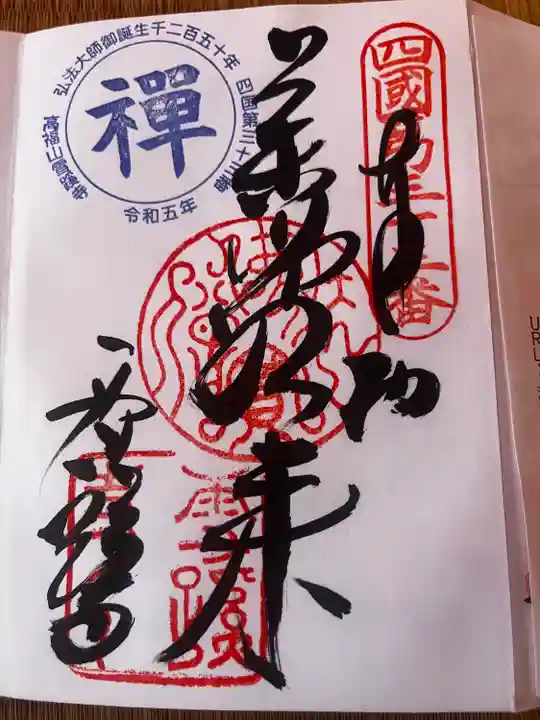 四國第三十三番
奉納
薬師如来
雪蹊寺
弘法大師御誕生千二百五十年
四国第三十三番
高福山雪蹊寺
禪
令和五年
雪蹊